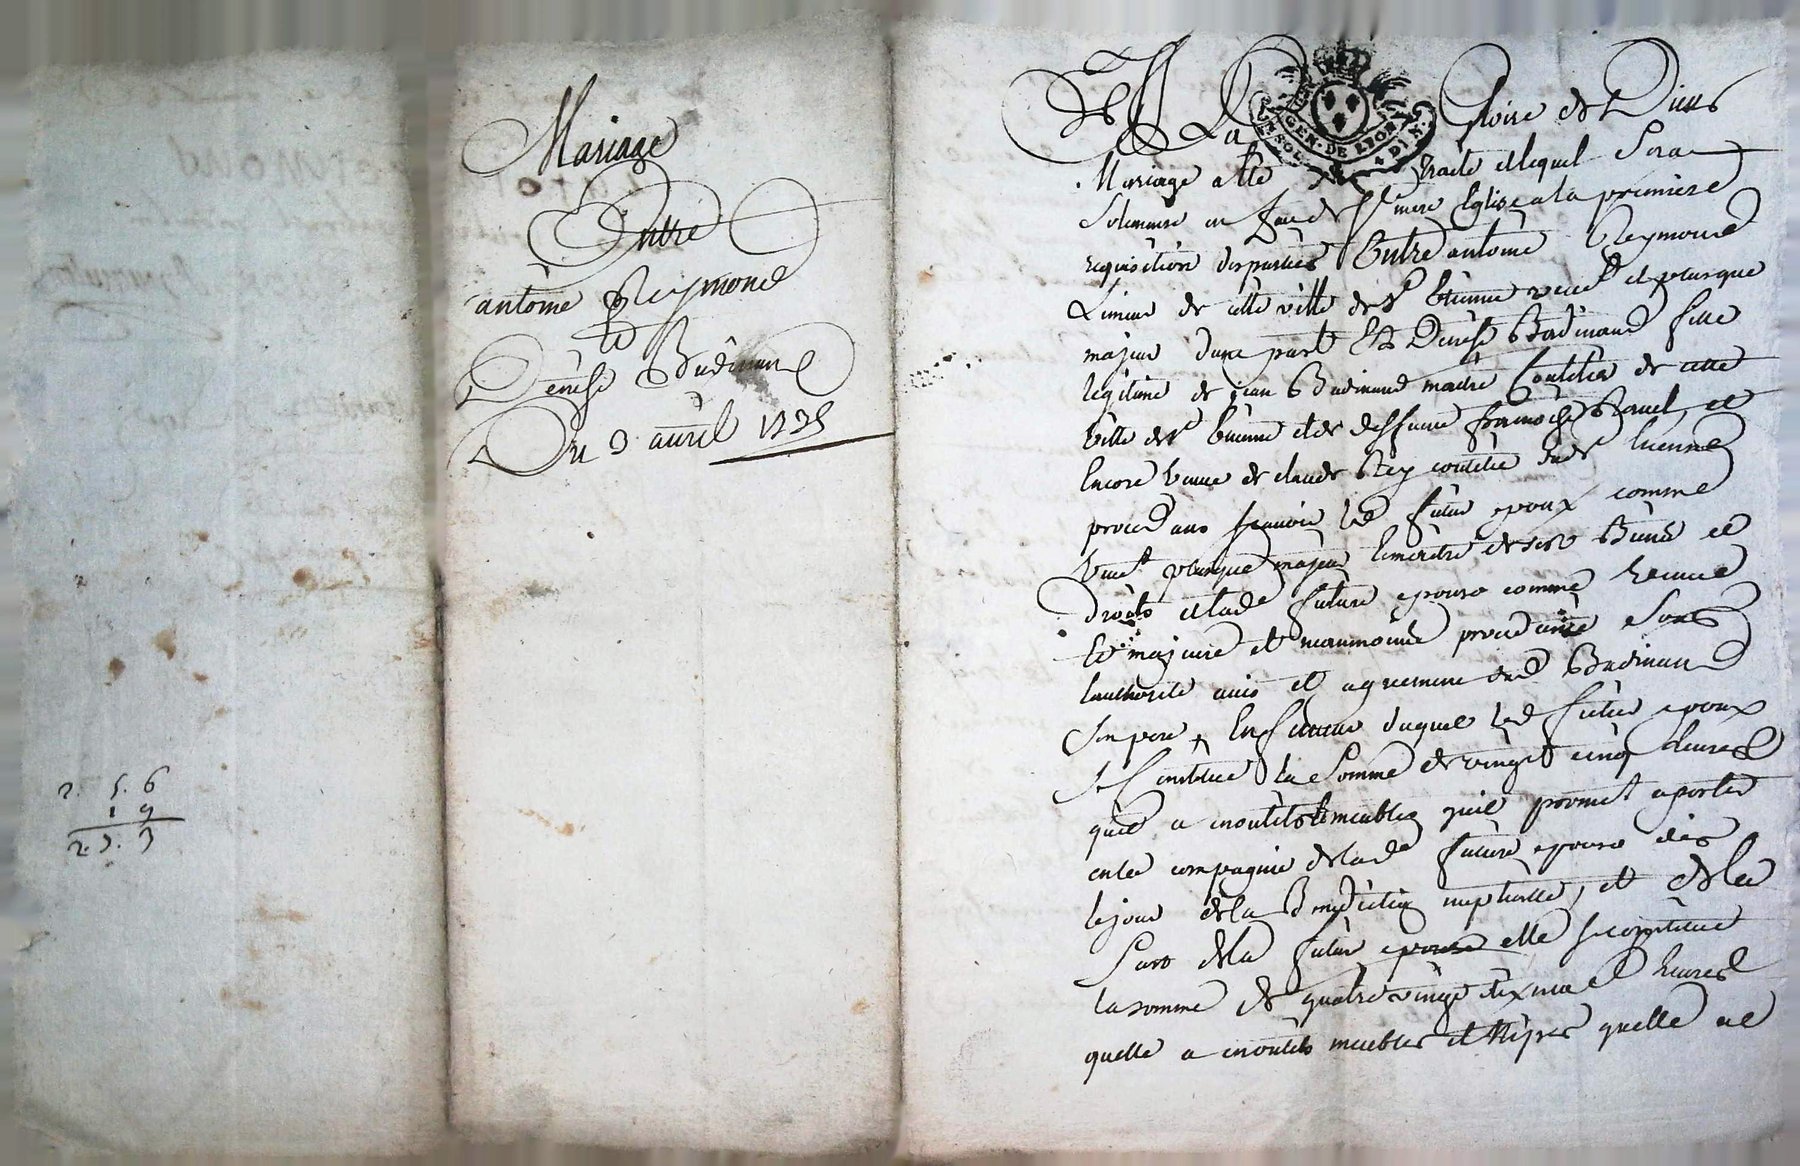 2. 5. 6
1 9
2. 3. 3
Mariage
Entre
antoine Reymond
Et
Denise Badinand
Du 3 auril 1735
A La Gloire de Dieu
GEN. DE LION
Mariage a été traité et lequel Sera
Solemnisé en face de Ste mere Eglise a la premiere
requisition des parties Entre antoine Reymond
Limeur de cette ville de St Etienne et plusque
majeur dune part Et Denise Badinand fille
legitime de jean Badinand maitre Coutelier de cette
ville de St Etienne et de deffunte françoise et
Encore veuve de claude Rey coutelier dud St Etienne
proced ans sçauoir led futur epoux comme
plusque majeur maitre de ses Biens et
droits et lade future epouse comme veuve
Et majeure et neanmoins procedante Sous
lauthorité auis et agrement dud Badinand
Son pere, En faueur duquel led futur epoux
se Constitue la Somme de vingt cinq liures
quil a en outils et meubles quil promet aporter
en la compagnie de lade future epouse dès
le jour de la Benediction nuptialle, et de la
Part de la futur epouse elle se constitue
la somme de quatre vingt dix neuf liures
quelle a en outils meubles et nipes quelle